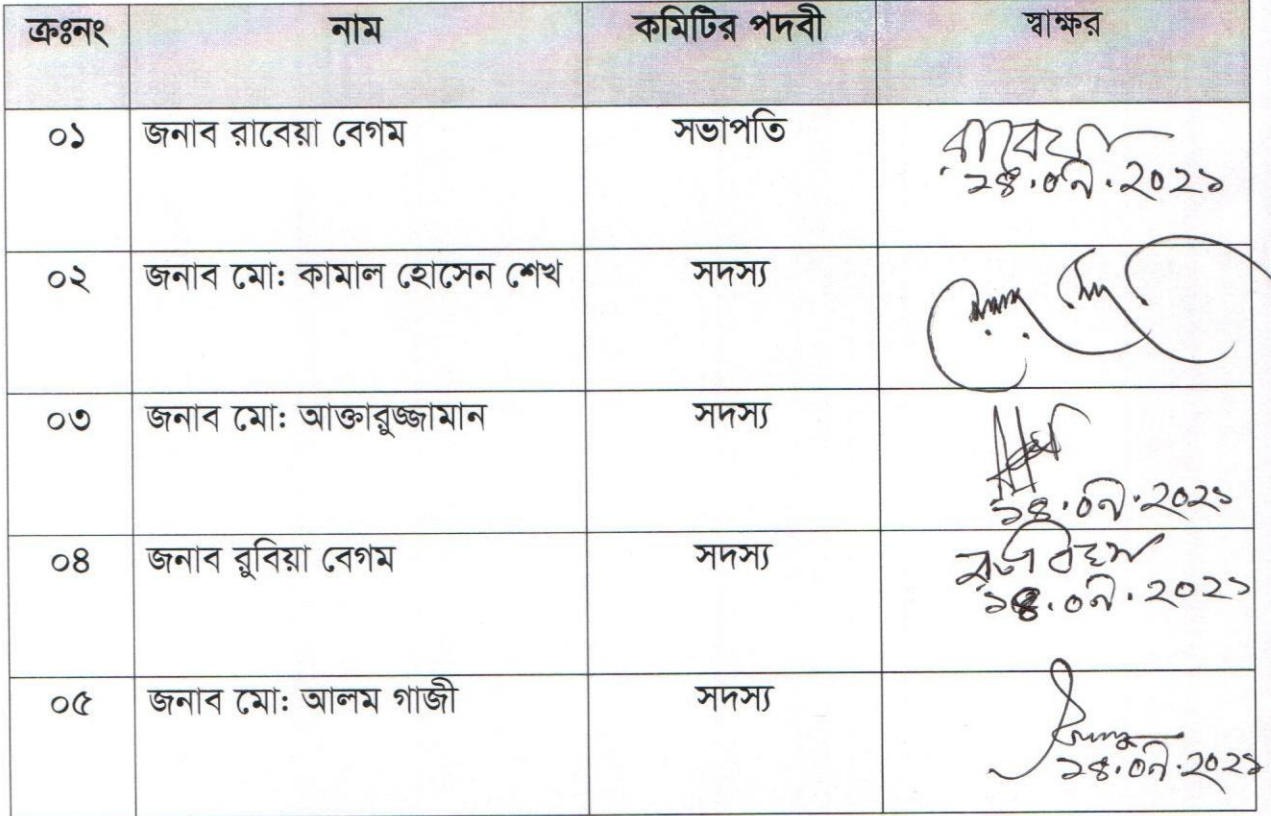 ক্রঃনং নাম কমিটির পদবী স্বাক্ষর
০১ জনাব রাবেয়া বেগম সভাপতি রাবেয়া
১৪.০৭.২০২১
০২ জনাব মো: কামাল হোসেন শেখ সদস্য
০৩ জনাব মো: আক্তারুজ্জামান সদস্য
১৪.০৭.২০২১
০৪ জনাব রুবিয়া বেগম সদস্য
১৪.০৭.২০২১
০৫ জনাব মো: আলম গাজী সদস্য
১৪.০৭.২০২১